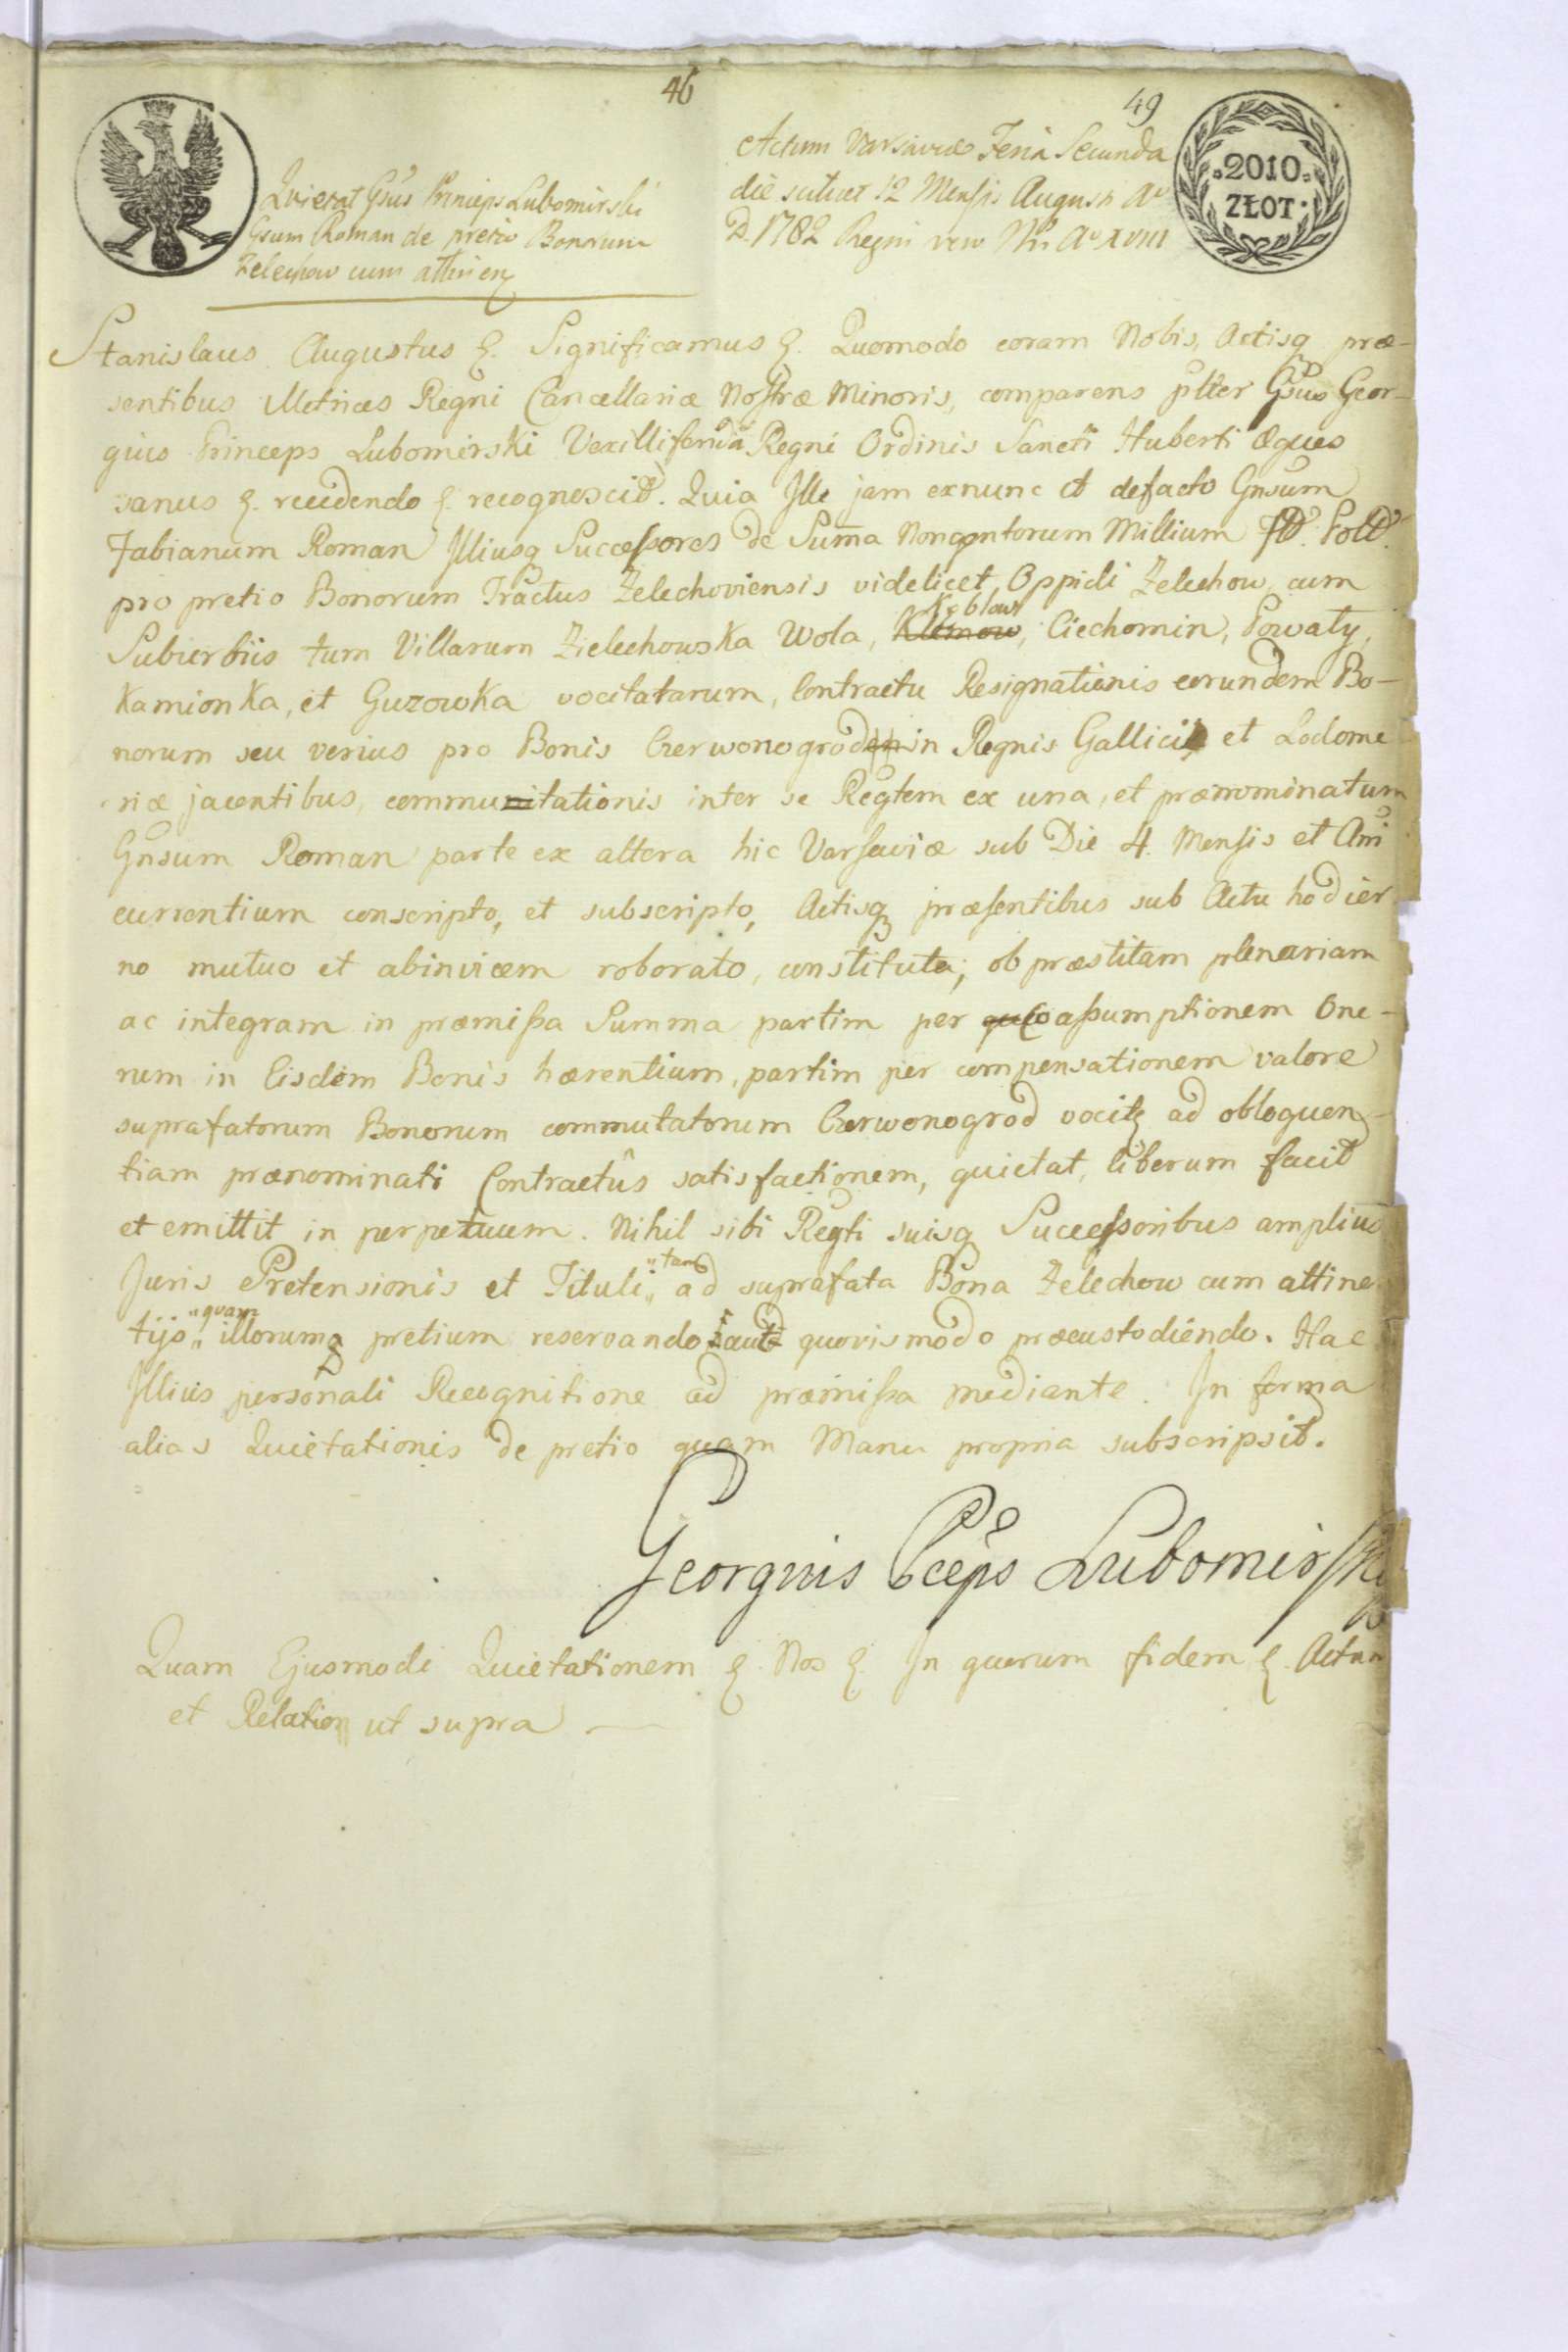 46
49
2010
ZŁOT
Quietat Gsus Princeps Lubomirski
Gsum Roman de pretio Bonorum
Zelechow cum attinen
Actum Varsaviae Feria Secunda
die scilicet 12 Mensis Augusti Aº
D. 1782 Regni vero Nri Aº XVIII
Stanislaus Augustus &. Significamus &. Quomodo coram Nobis, Actisq præ-
sentibus Metrices Regni Cancellariæ Nostræ Minoris, comparens plter Gsus Geor-
gius Princeps Lubomirski Vexilliferida Regni Ordinis Sancti Huberti Eques
sanus &. recedendo &. recognoscit. Quia Ille jam exnunc et defacto Gnsum
Fabianum Roman Illiusq Successores de Suma Nongentorum Millium Fl. Poll.
pro pretio Bonorum Tractus Zelechoviensis videlicet Oppidi Zelechow cum
Keblow
Suburbiis tum Villarum Zielechowska Wola, Klemow, Ciechomin, Powaty,
Kamionka, et Guzowka vocitatarum, Contractu Resignationis eorundem Bo-
norum seu verius pro Bonis Czerwonogrod in Regnis Galliciæ et Lodome
riæ jacentibus, commutationis inter se Regtem ex una, et prænominatum
Gnsum Roman parte ex altera hic Varsaviæ sub Die 4. Mensis et Ani
currentium conscripto, et subscripto, Actisq præsentibus sub Actu hodier
no mutuo et abinvicem roborato, constituta; ob præstitam plenariam
ac integram in præmissa Summa partim per assumptionem One-
rum in Eisdem Bonis hærentium, partim per compensationem valore
suprafatorum Bonorum commutatorum Czerwonogrod vocit ad obloquen-
tiam prænominati Contractûs satisfactionem, quietat, liberum facit
et emittit in perpetuum. Nihil sibi Regti suisq Successoribus amplius
tam
Juris Pretensionis et Tituli ad suprafata Bona Zelechow cum attinen
quam
tijs illorumq pretium reservando aut quovismodo præcustodiendo. Hac
Illius personali Recognitione ad præmissa mediante. In forma
alias Quietationis de pretio quam Manu propria subscripsit.
Georgius Pceps Lubomirski
Quam Ejusmodi Quietationem &. Nos &. In quorum fidem &. Actum
et Relation ut supra